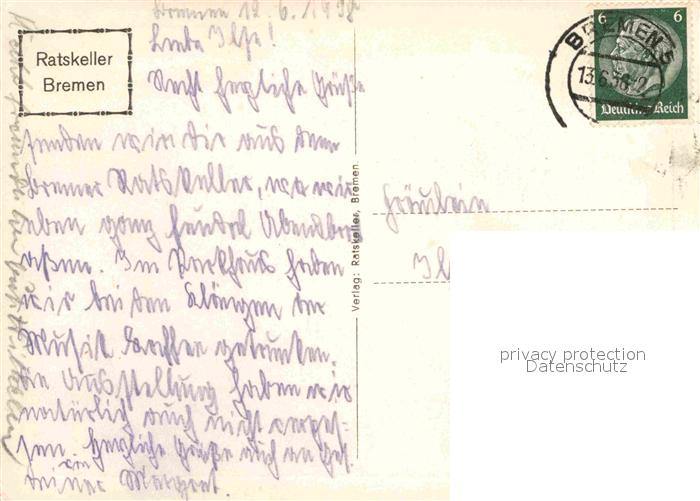 Bremen 12.6.1938
Liebe Ilse!
Recht herzliche Grüße
senden wir Dir aus dem
Bremer Ratskeller, wo wir
eben ganz feudal Abendbrot
aßen. Im Parkhaus haben
wir bei den Klängen der
Musik Kaffee getrunken.
Die Ausstellung haben wir
natürlich auch nicht verges-
sen. Herzliche Grüße auch an
Deine Margret.
Ratskeller
Bremen
Verlag: Ratskeller, Bremen.
6 6
Deutsches Reich
BREMEN 5
13.6.38
Fräulein
privacy protection
Datenschutz